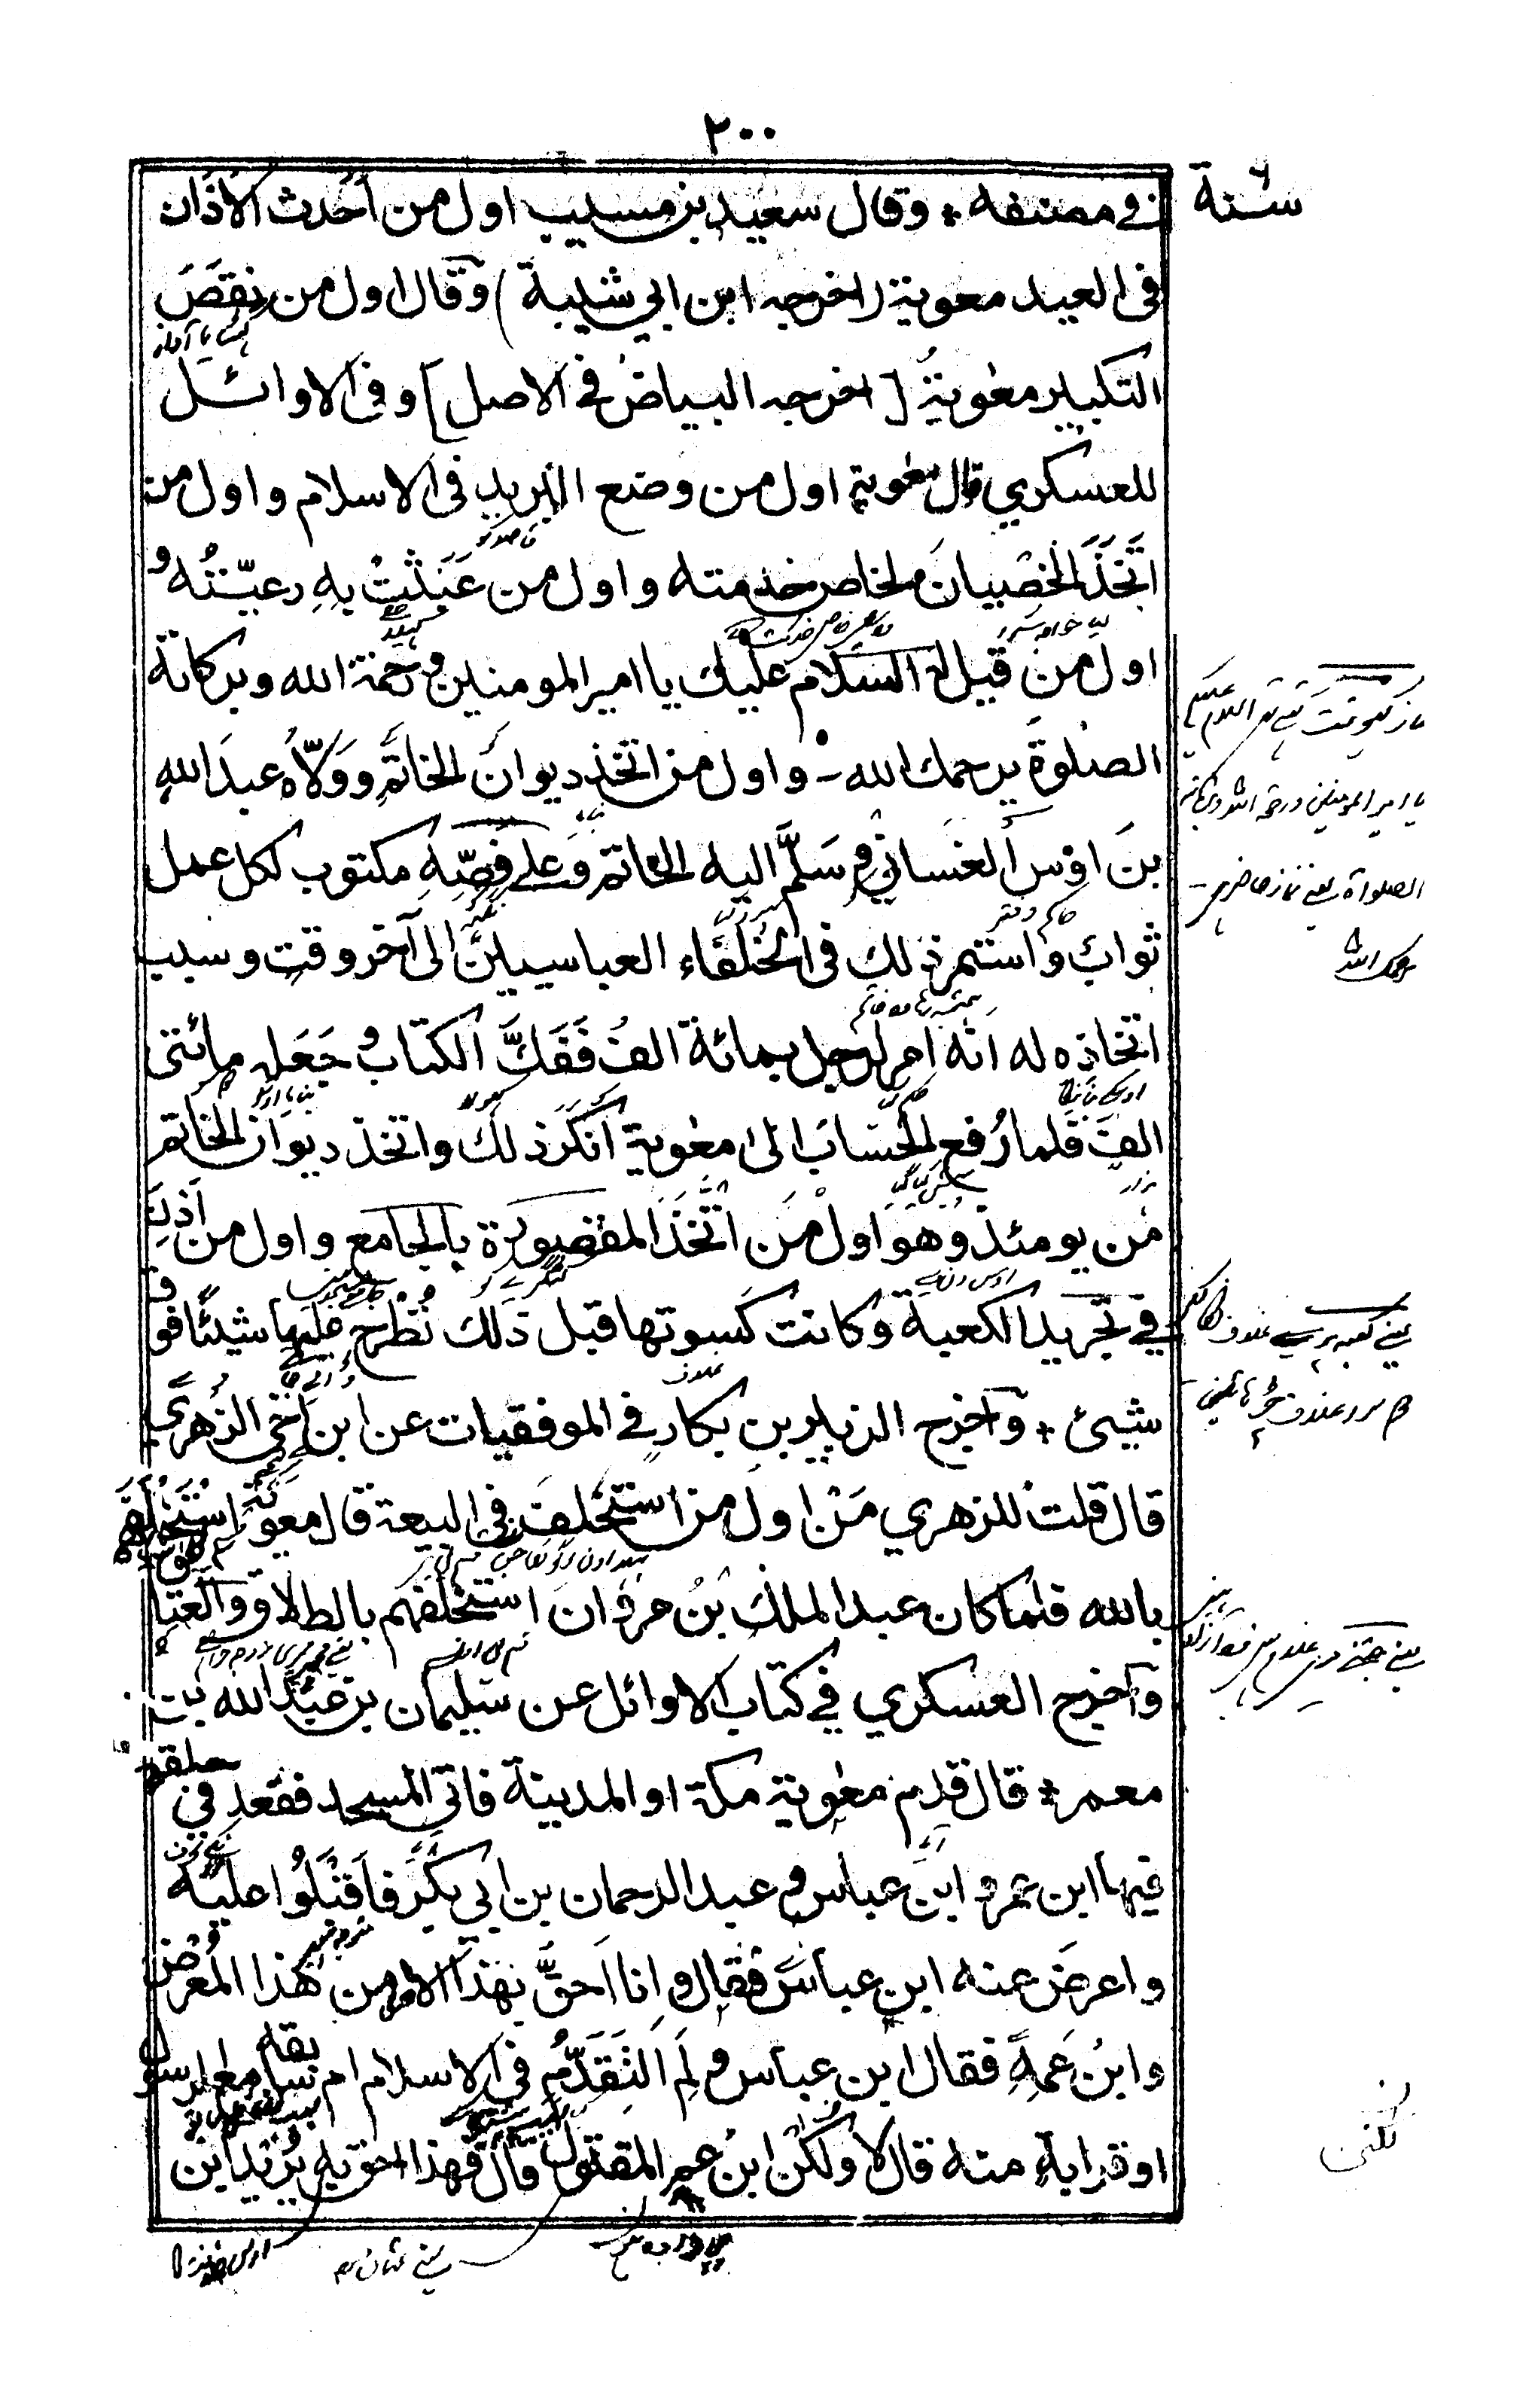 ٢٠٠
سنة
في مصنفه * وقال سعيد بن مسيب اول من اَحْدث الاَذان
فى العيد معوية (اخرجه ابن ابي شيبة) وقال اول من نقَصَ
التكبير معٰوية [اخرجه البياض في الاصل] وفى الاوائل
للعسكري قال معٰوية اول من وضع البريد فى الاسلام واول من
اتَّخَذَ الخصيان لخاص خدمته واول من عَبَثَتْ بِهِ رعيّتُهُ و
اول من قيل له السلام عليك يا امير المومنين و رحمة الله وبركاته
الصلوة يرحمك الله - واول من اتخذ ديوانَ الخاتَم وَوَلَّاهُ عبدَ اللهِ
بنَ اوْس الغساني و سَلَّم اليه الخاتم وعلى فَصِّهِ مكتوب لكل عمل
ثواب واستمر ذلك فى الخُلَفاء العباسيين الى آخر وقت وسبب
اتخاذه له انه امر لرجل بمائة الف فَفَكَّ الكتابَ و جَعَله مائتى
الف فلما رُفع الحساب الى معٰوية انكر ذلك واتخذ ديوان الخاتم
من يومئذ وهو اول من اتَّخَذَ المقصورة بالجامع واول من اَذِنَ
في تجريد الكعبة وكانت كسوتها قبل ذلك تُطْرح عليها شيئًا فوق
شيئ * واخرج الزبير بن بكار في الموفقيات عن ابن اخى الزُهري
قال قلت للزهري مَنْ اول من استحلف فى البيعة قال معوية استحلفهم
بالله فلما كان عبد الملك بن مروان استحلفهم بالطلاق والعتاق
واخرج العسكري في كتاب الاوائل عن سليمان بن عبد الله بن
معمر * قال قدم معٰوية مكة او المدينة فاتى المسجد فقعد في حلقة
فيها ابن عمر و ابن عباس و عبد الرحمان بن ابي بكر فاَقْبَلُوا عليه
واعرض عنه ابن عباس فقال و انا احقُّ بهذا الامر من هذا المُعْرض
وابنُ عَمِهِ فقال ابن عباس و لِمَ التَقَدُّم فى الاسلام ام سابقة مع رسول
او قرابة منه قال لا ولكن ابن عم المقتول قال فهذا احق به يُريد ابن
يا امير المومنين ورحمة الله وبركاته
الصلواة يعنے نماز حاضر ہے
يرحمك الله